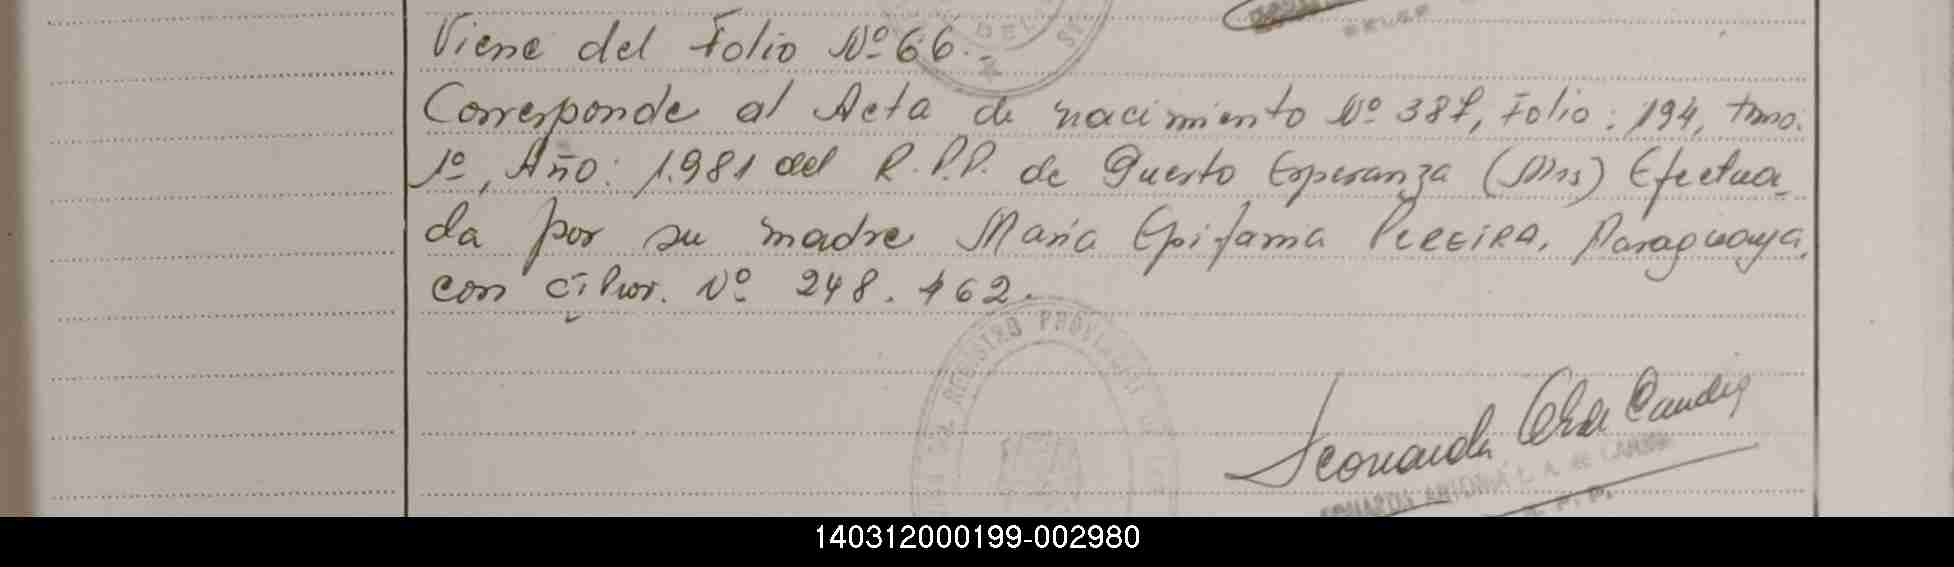 Viene del Folio Nº 66.-
Corresponde al Acta de nacimiento Nº 387, Folio: 194, tomo.
1º, Año: 1.981 del R.P.P. de Puerto Esperanza (Mns) Efectua_
da por su madre María Epifania PEREIRA, Paraguaya,
con Nº 248.462.
REGISTRO PROVINCIAL
140312000199-002980